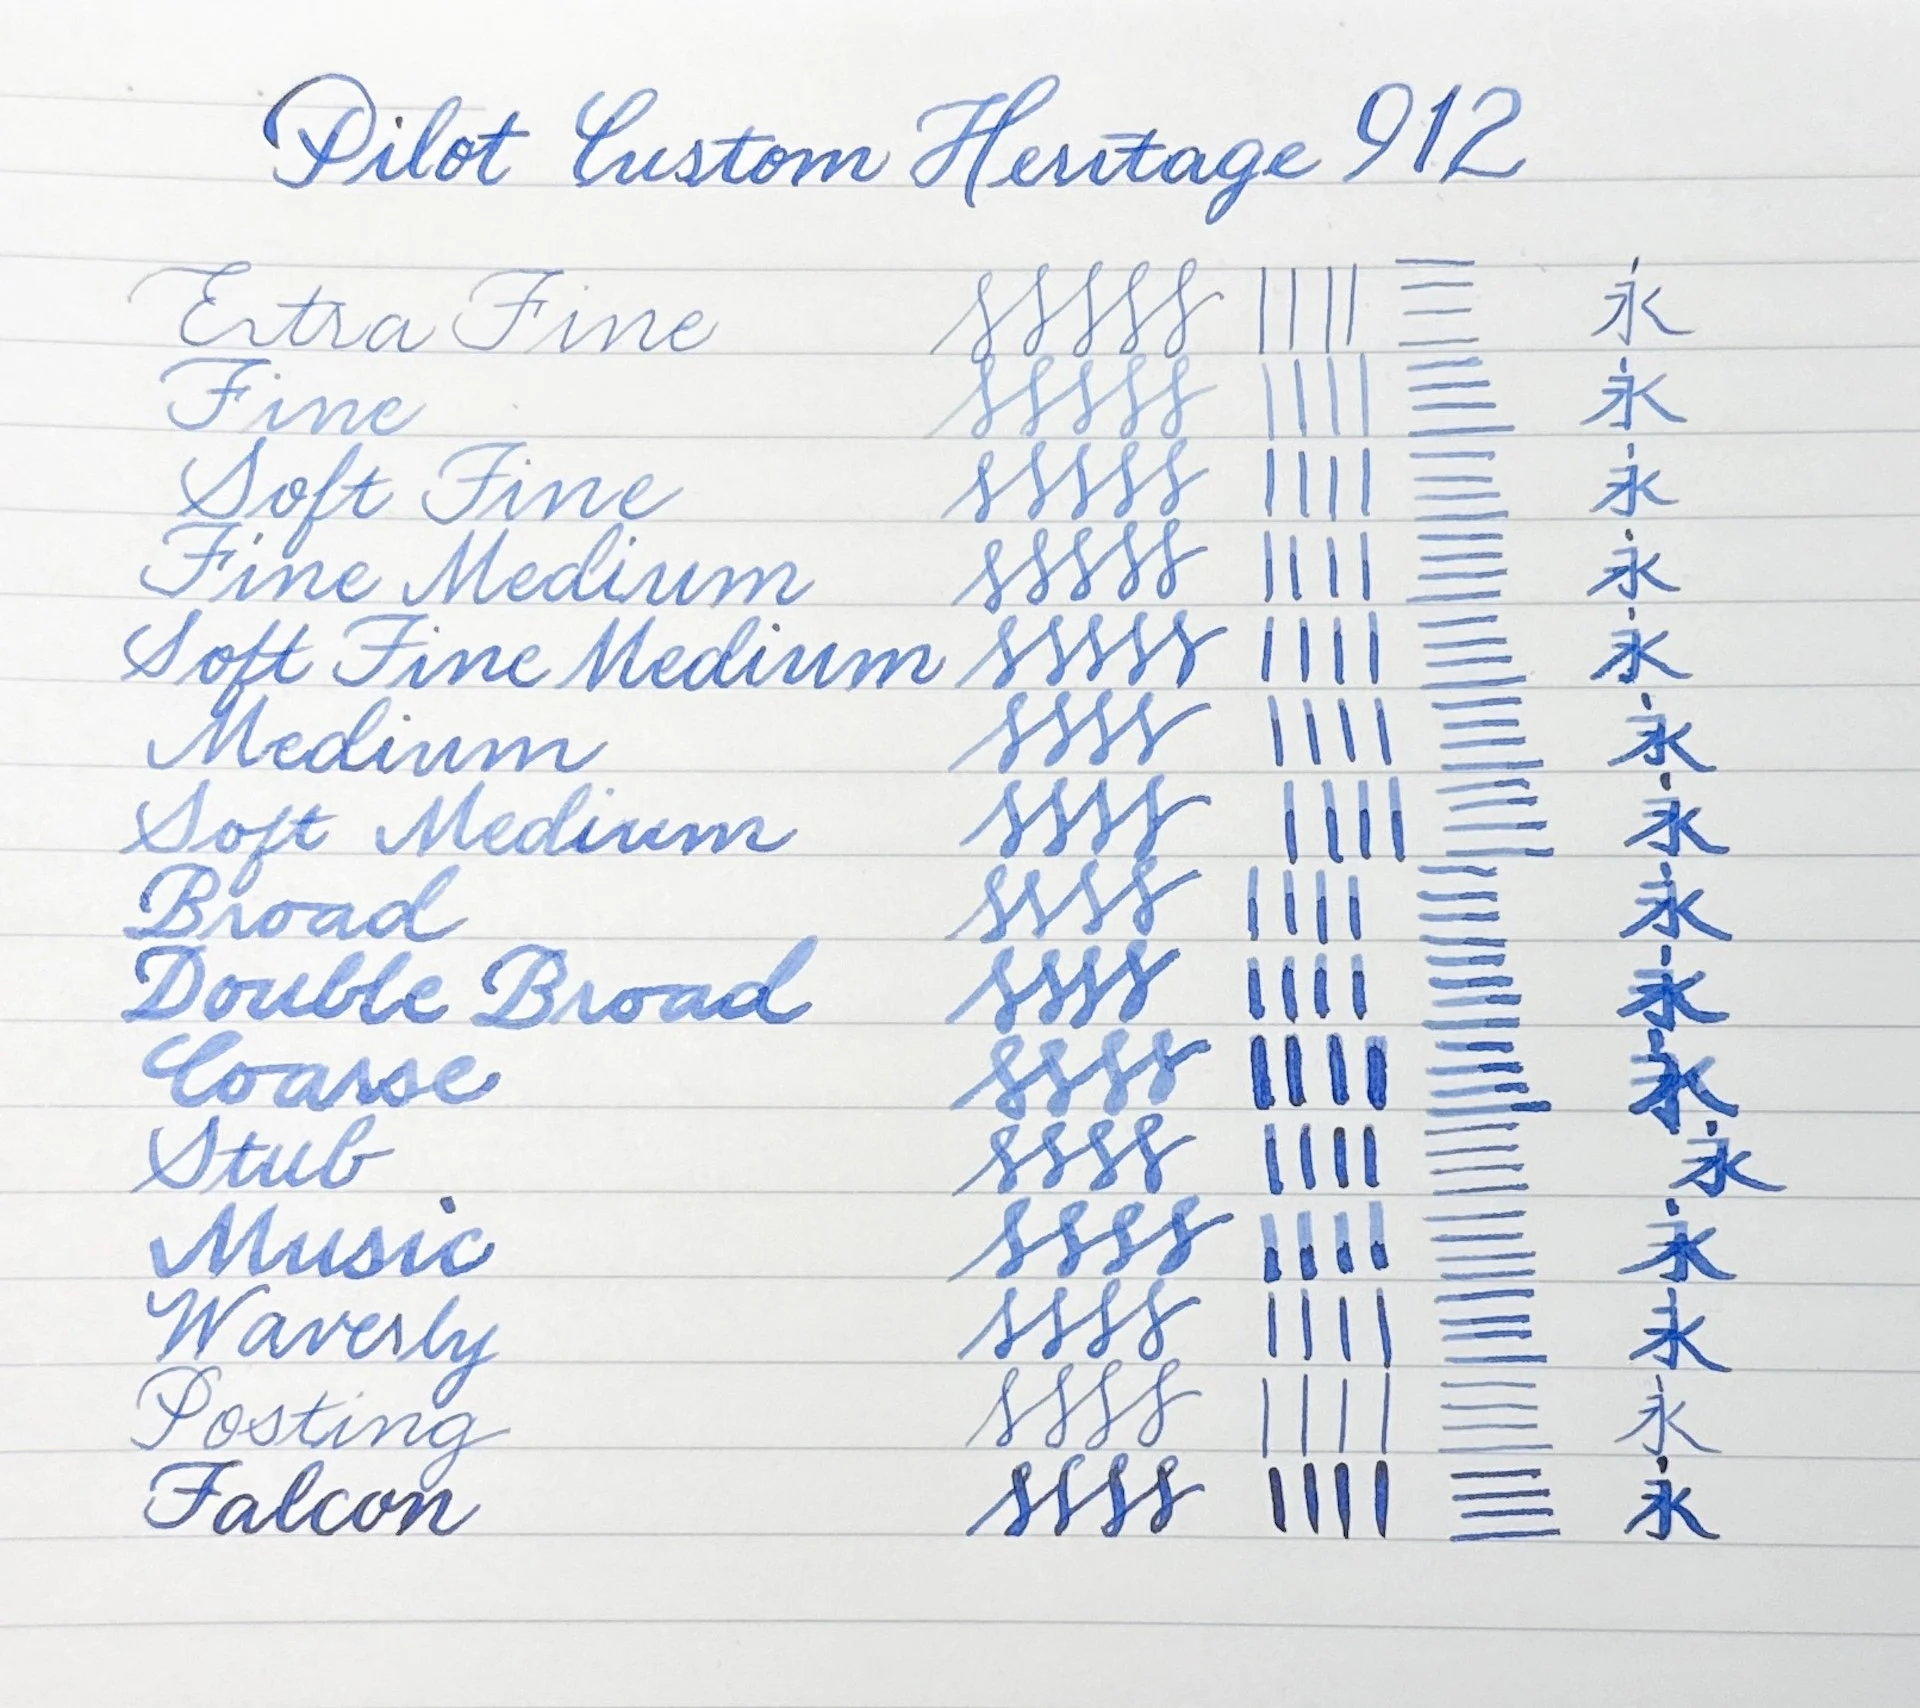 Pilot Custom Heritage 912
Extra Fine 永
Fine 永
Soft Fine 永
Fine Medium 永
Soft Fine Medium 永
Medium 永
Soft Medium 永
Broad 永
Double Broad 永
Coarse 永
Stub 永
Music 永
Waverly 永
Posting 永
Falcon 永